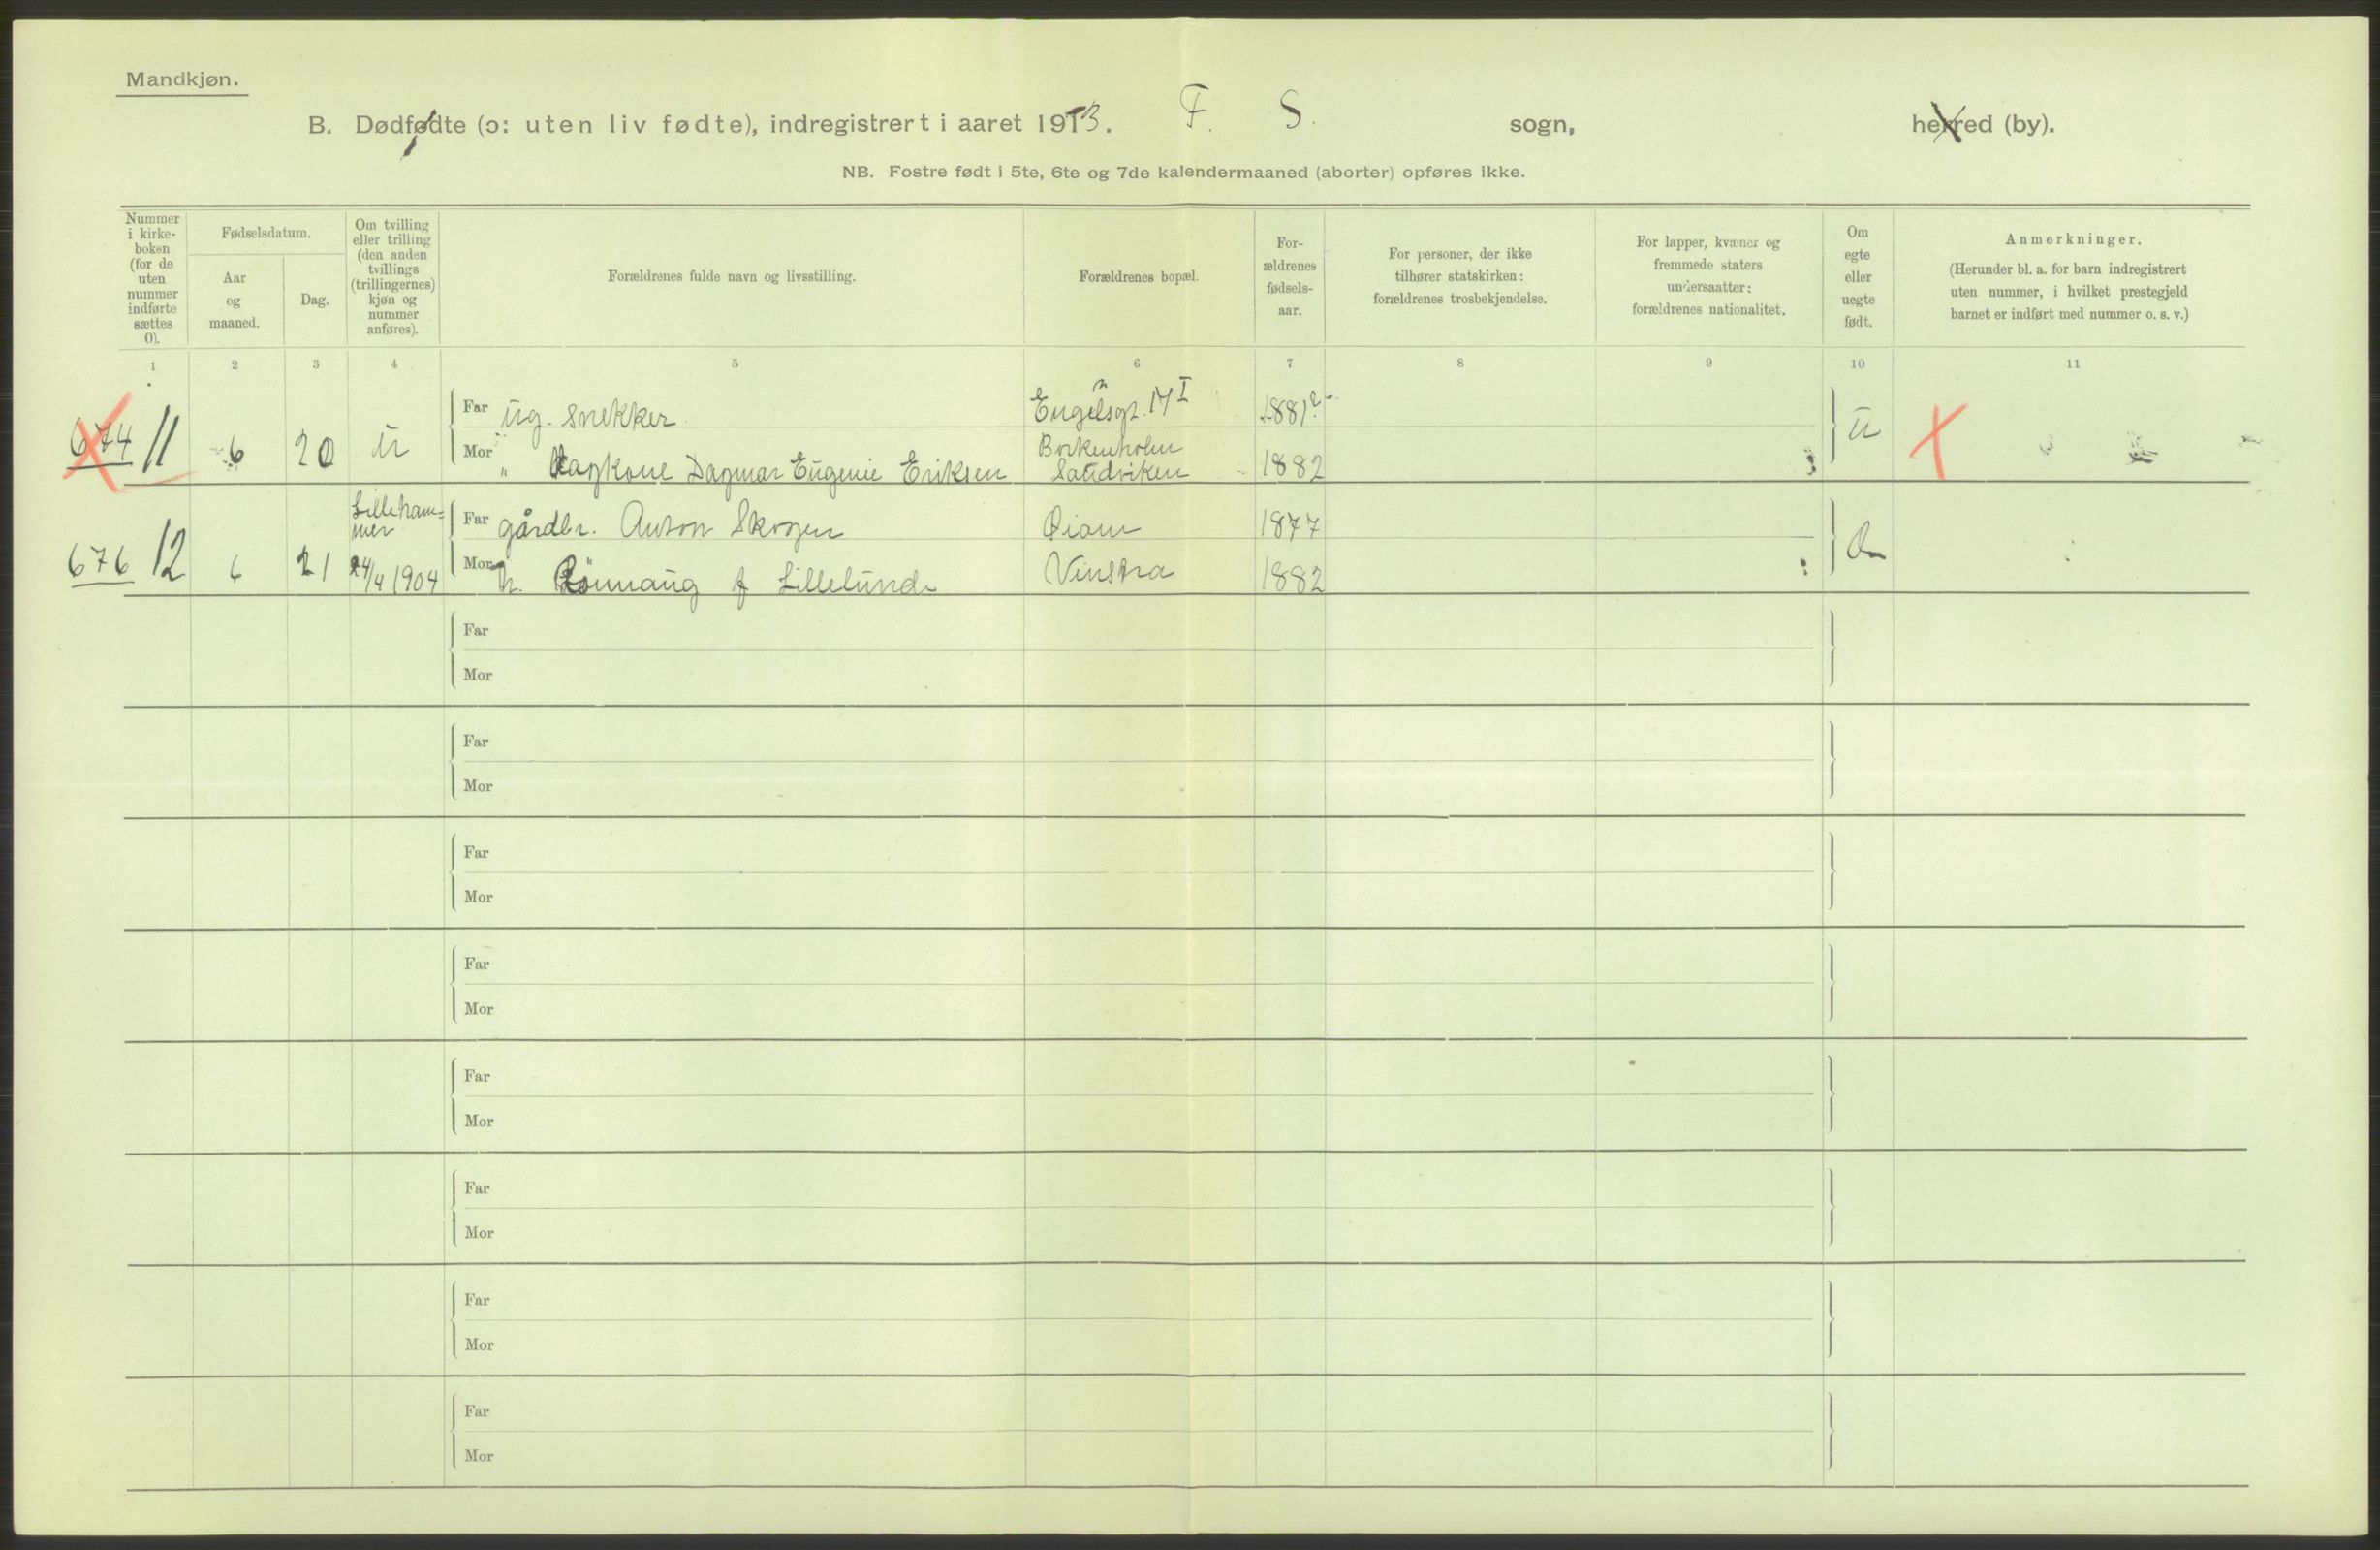 Mandkjøn.
B. Dødfødte (ɔ: uten liv fødte), indregistrert i aaret 1913. F. S. sogn, herred (by).
NB. Fostre født i 5te, 6te og 7de kalendermaaned (aborter) opføres ikke.
Nummer
i kirke-
boken
(for de
uten
nummer
indførte
sættes
0).
Fødselsdatum.
Aar
og
maaned.
Dag.
Om tvilling
eller trilling
(den anden
tvillings
(trillingernes)
kjøn og
nummer
anføres).
Forældrenes fulde navn og livsstilling.
Forældrenes bopæl.
For-
ældrenes
fødsels-
aar.
For personer, der ikke
tilhører statskirken:
forældrenes trosbekjendelse.
For lapper, kvæner og
fremmede staters
undersaatter:
forældrenes nationalitet.
Om
egte
eller
uegte
født.
Anmerkninger.
(Herunder bl. a. for barn indregistrert
uten nummer, i hvilket prestegjeld
barnet er indført med nummer o. s. v.)
1 2 3 4 5 6 7 8 9 10 11
674 11 6 20 U
Far ug. snekker 1881?
Mor " Dagmar Eugenie Eriksen Sandviken 1882 U
676 12 6 21
Lilleham=
mer
24/4 1904
Far gårdbr. Anton Skogen 1877
Mor h. Rönnaug f Lillelunde Vinstra 1882
Far
Mor
Far
Mor
Far
Mor
Far
Mor
Far
Mor
Far
Mor
Far
Mor
Far
Mor